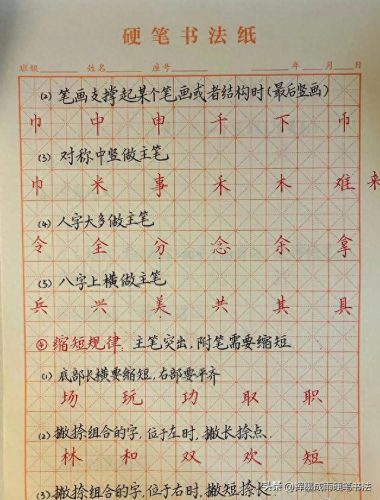 硬笔书法纸
班级 姓名 座号 年 月 日
(2) 笔画支撑起某个笔画或者结构时(最后竖画)
巾 中 申 千 下 巾
(3) 对称中竖做主笔
巾 米 事 禾 木 难 来
(4) 人字大多做主笔
令 全 分 念 余 拿
(5) 八字上横做主笔
兵 兴 美 共 其 具
④ 缩短规律: 主笔突出,附笔需要缩短
(1) 底部长横要缩短,右部要平齐
场 玩 功 取 职
(2) 撇捺组合的字,位于左时,撇长捺点.
林 和 双 欢 短
(3) 撇捺组合的字,位于右时,撇短捺长
头条 @挥楹成雨硬笔书法